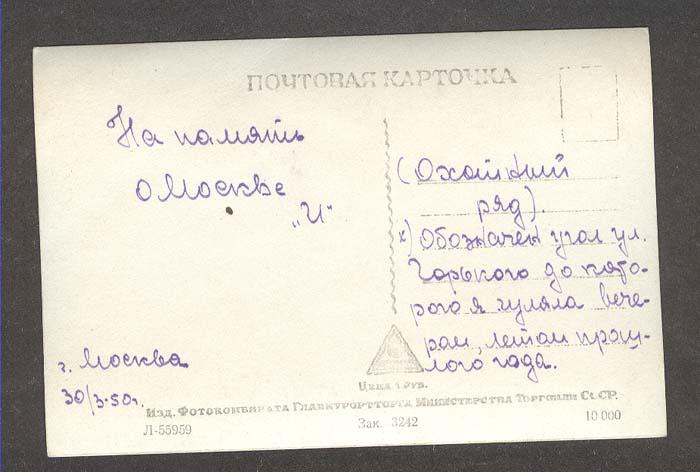 ПОЧТОВАЯ КАРТОЧКА
На память
о Москве
„И"
г. Москва
30/3-50г.
(Охотный
ряд).
х) Обозначен угол ул.
Горького до кото-
рого я гуляла вече-
ром, летом прош-
лого года.
Цена 1 руб.
Изд. Фотокомбината Главкурортторга Министерства Торговли СССР.
Л-55959
Зак. 3242
10 000